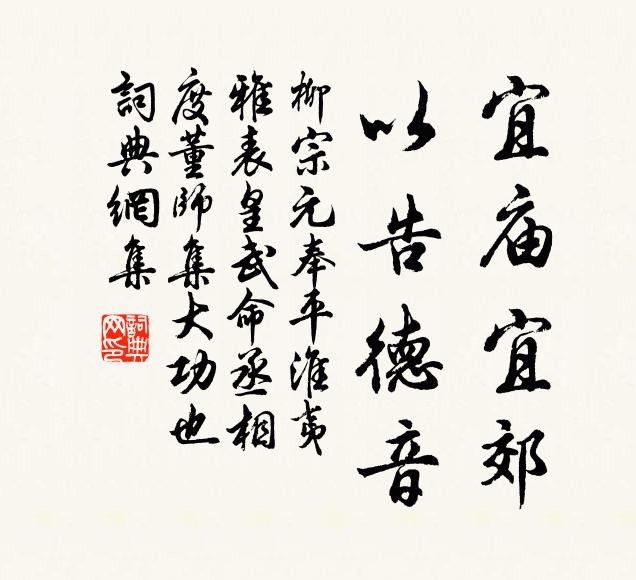 宜庙宜郊
以告德音
柳宗元奉平淮夷
雅表皇武命丞相
度董师集大功也
詞典網集
詞典
网印